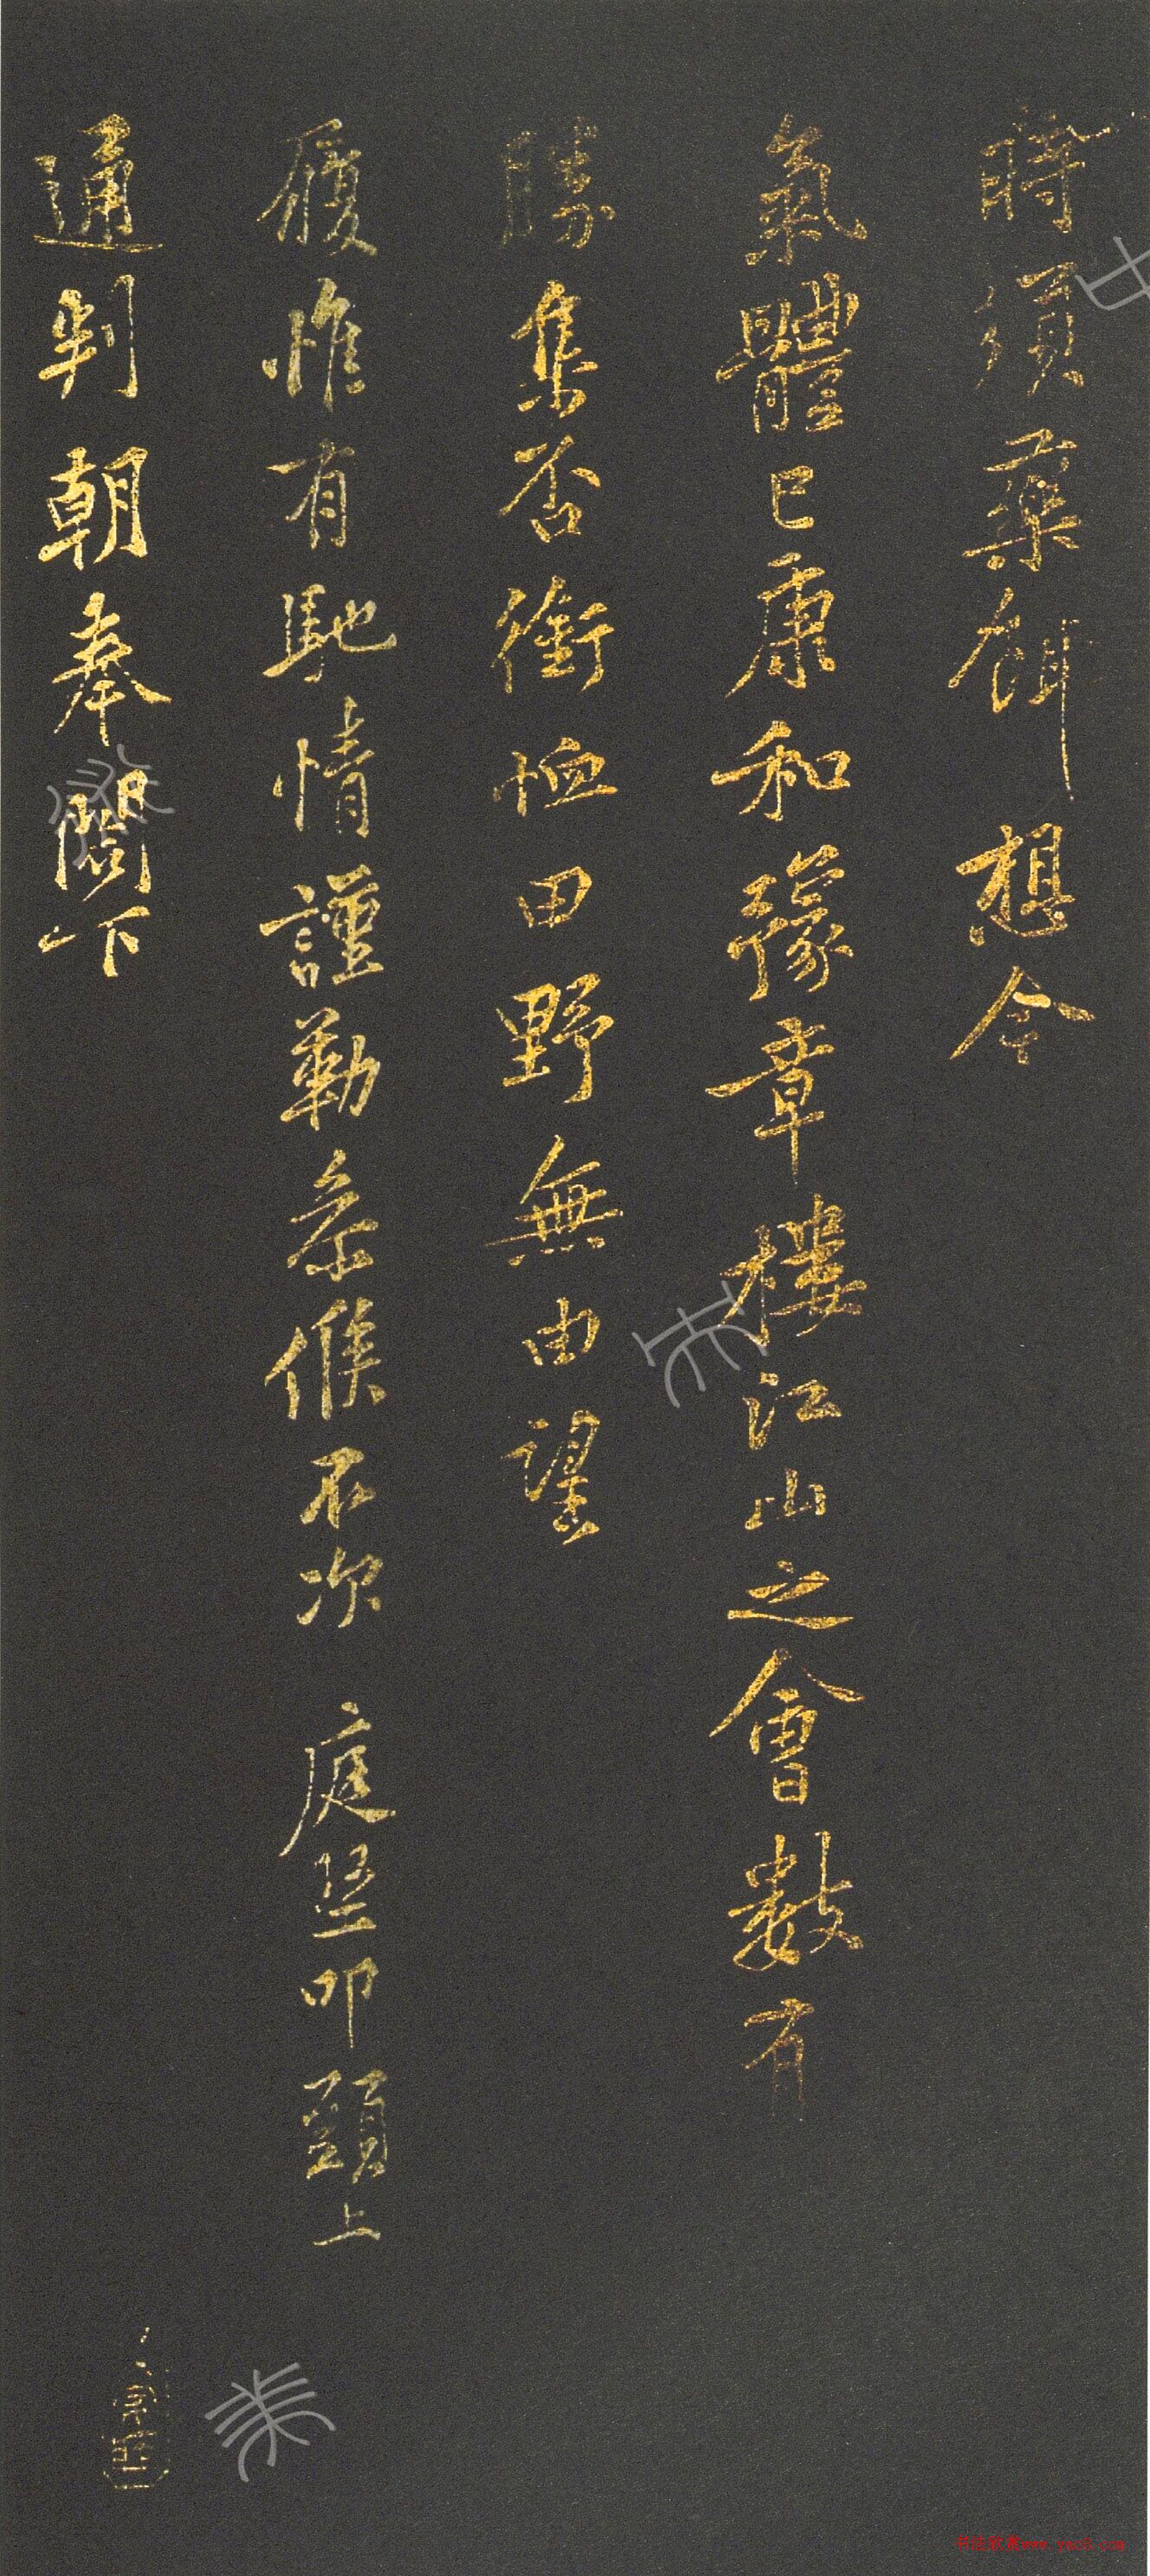 時須藥餌想今
氣體已康和豫章樓江山之會數有
勝集否銜恤田野無由望
履惟有馳情謹勒參候不次 庭堅叩頭上
通判朝奉閤下